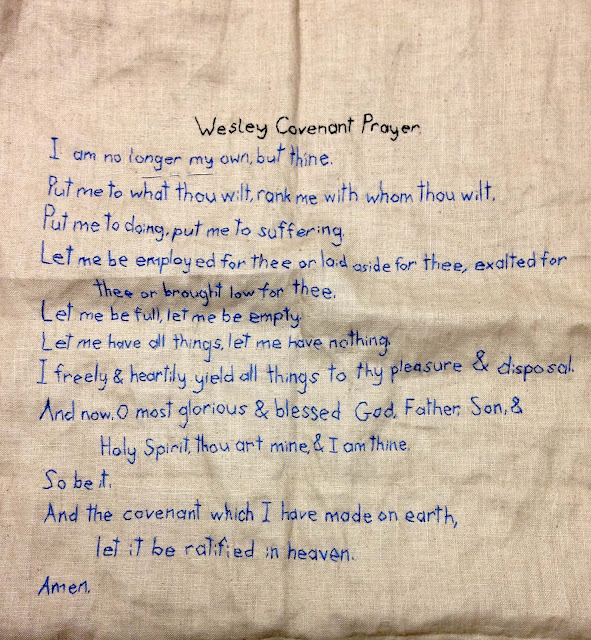 Wesley Covenant Prayer
I am no longer my own, but thine.
Put me to what thou wilt, rank me with whom thou wilt.
Put me to doing, put me to suffering.
Let me be employed for thee or laid aside for thee, exalted for
thee or brought low for thee.
Let me be full, let me be empty.
Let me have all things, let me have nothing.
I freely & heartily yield all things to thy pleasure & disposal.
And now, O most glorious & blessed God, Father, Son, &
Holy Spirit, thou art mine, & I am thine.
So be it.
And the covenant which I have made on earth,
let it be ratified in heaven.
Amen.